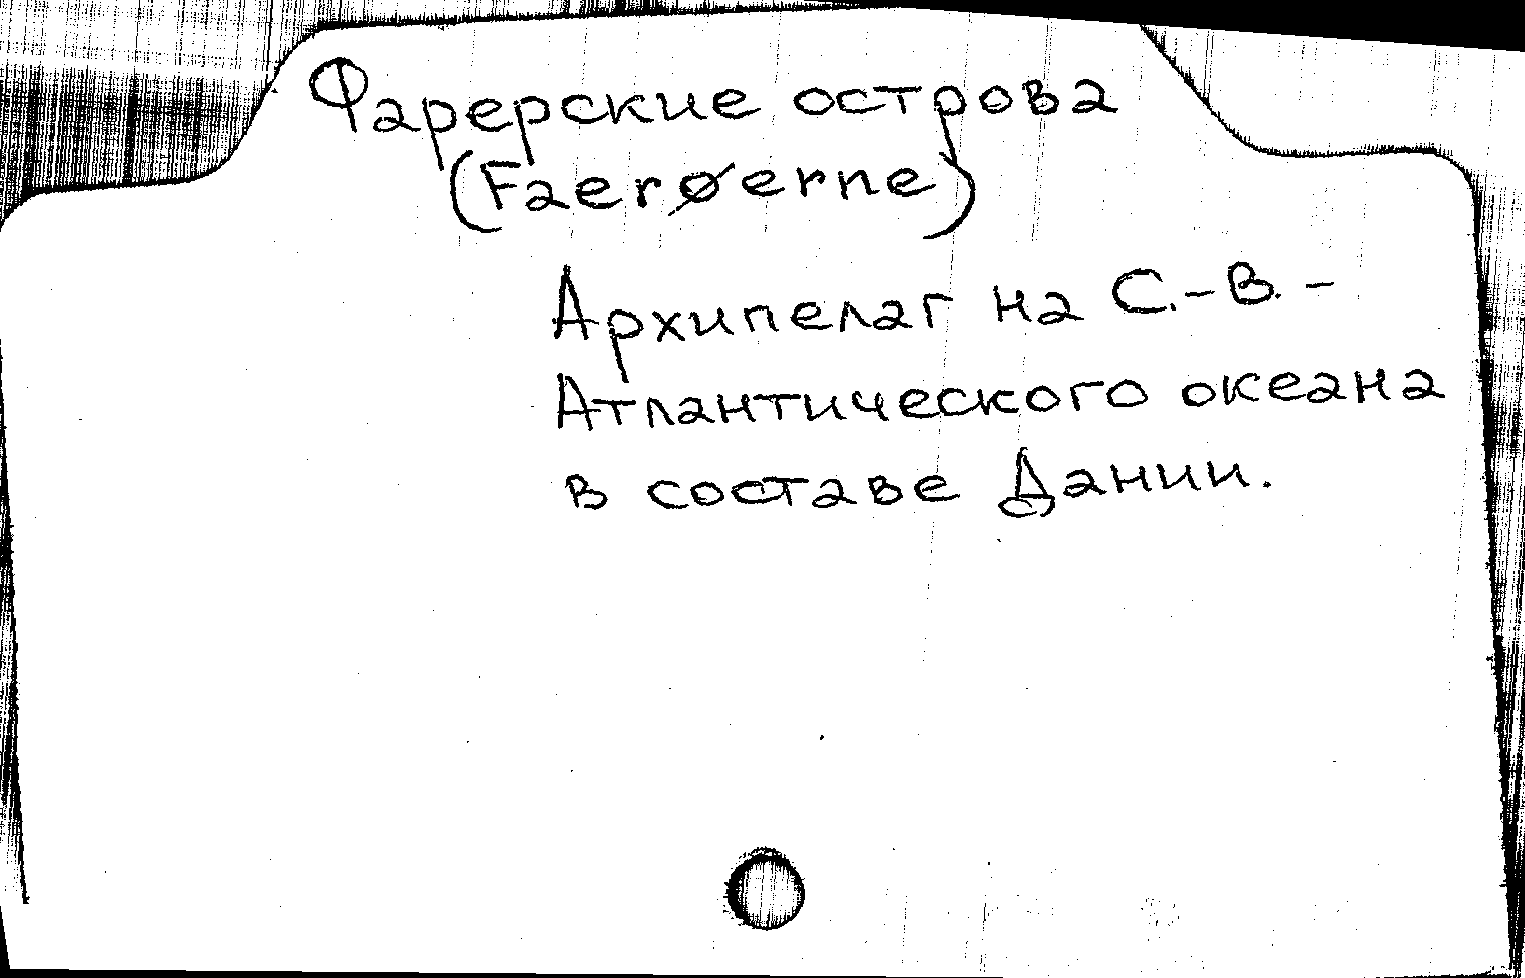 Фарерские острова
(Faerøerne)
Архипелаг на С.-В. -
Атлантического океана
в составе Дании.